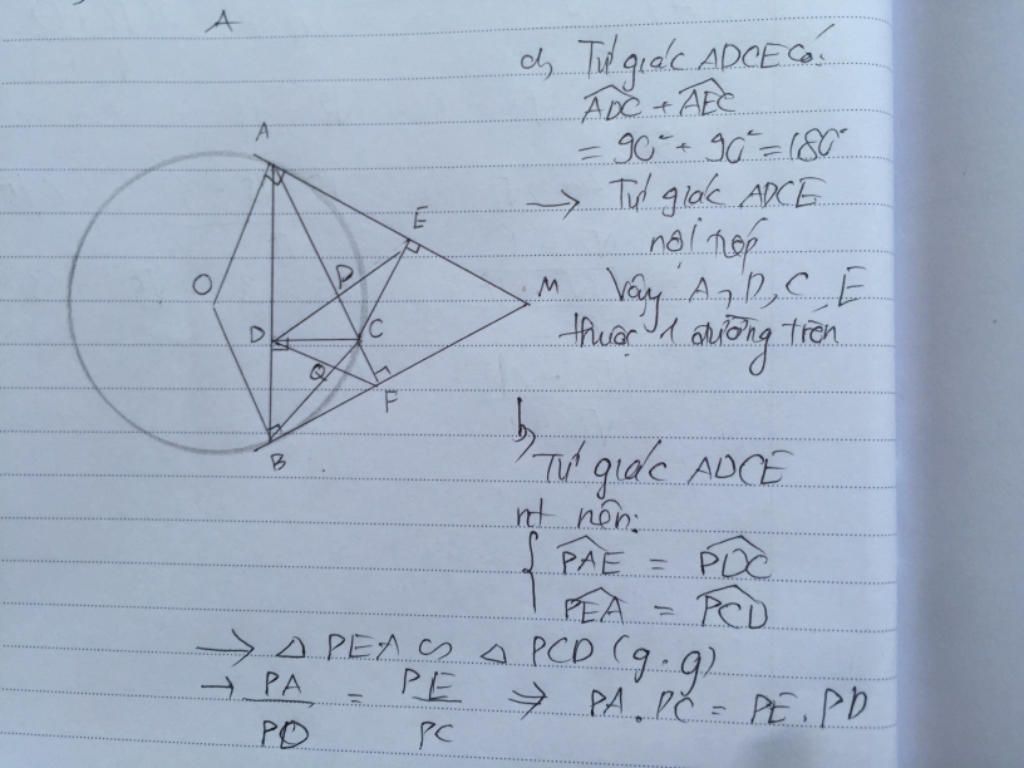 A
a, Tứ giác ADCE có:
ADC + AEC
= 90° + 90° = 180°
→ Tứ giác ADCE
nội tiếp
Vậy A, D, C, E
thuộc 1 đường tròn
A
E
O
P
M
D
C
Q
F
B
b,
Tứ giác ADCE
nt nên:
{ PAE = PDC
PEA = PCD
→ Δ PEA ∽ Δ PCD (g.g)
→ PA/PD = PE/PC ⇒ PA.PC = PE.PD